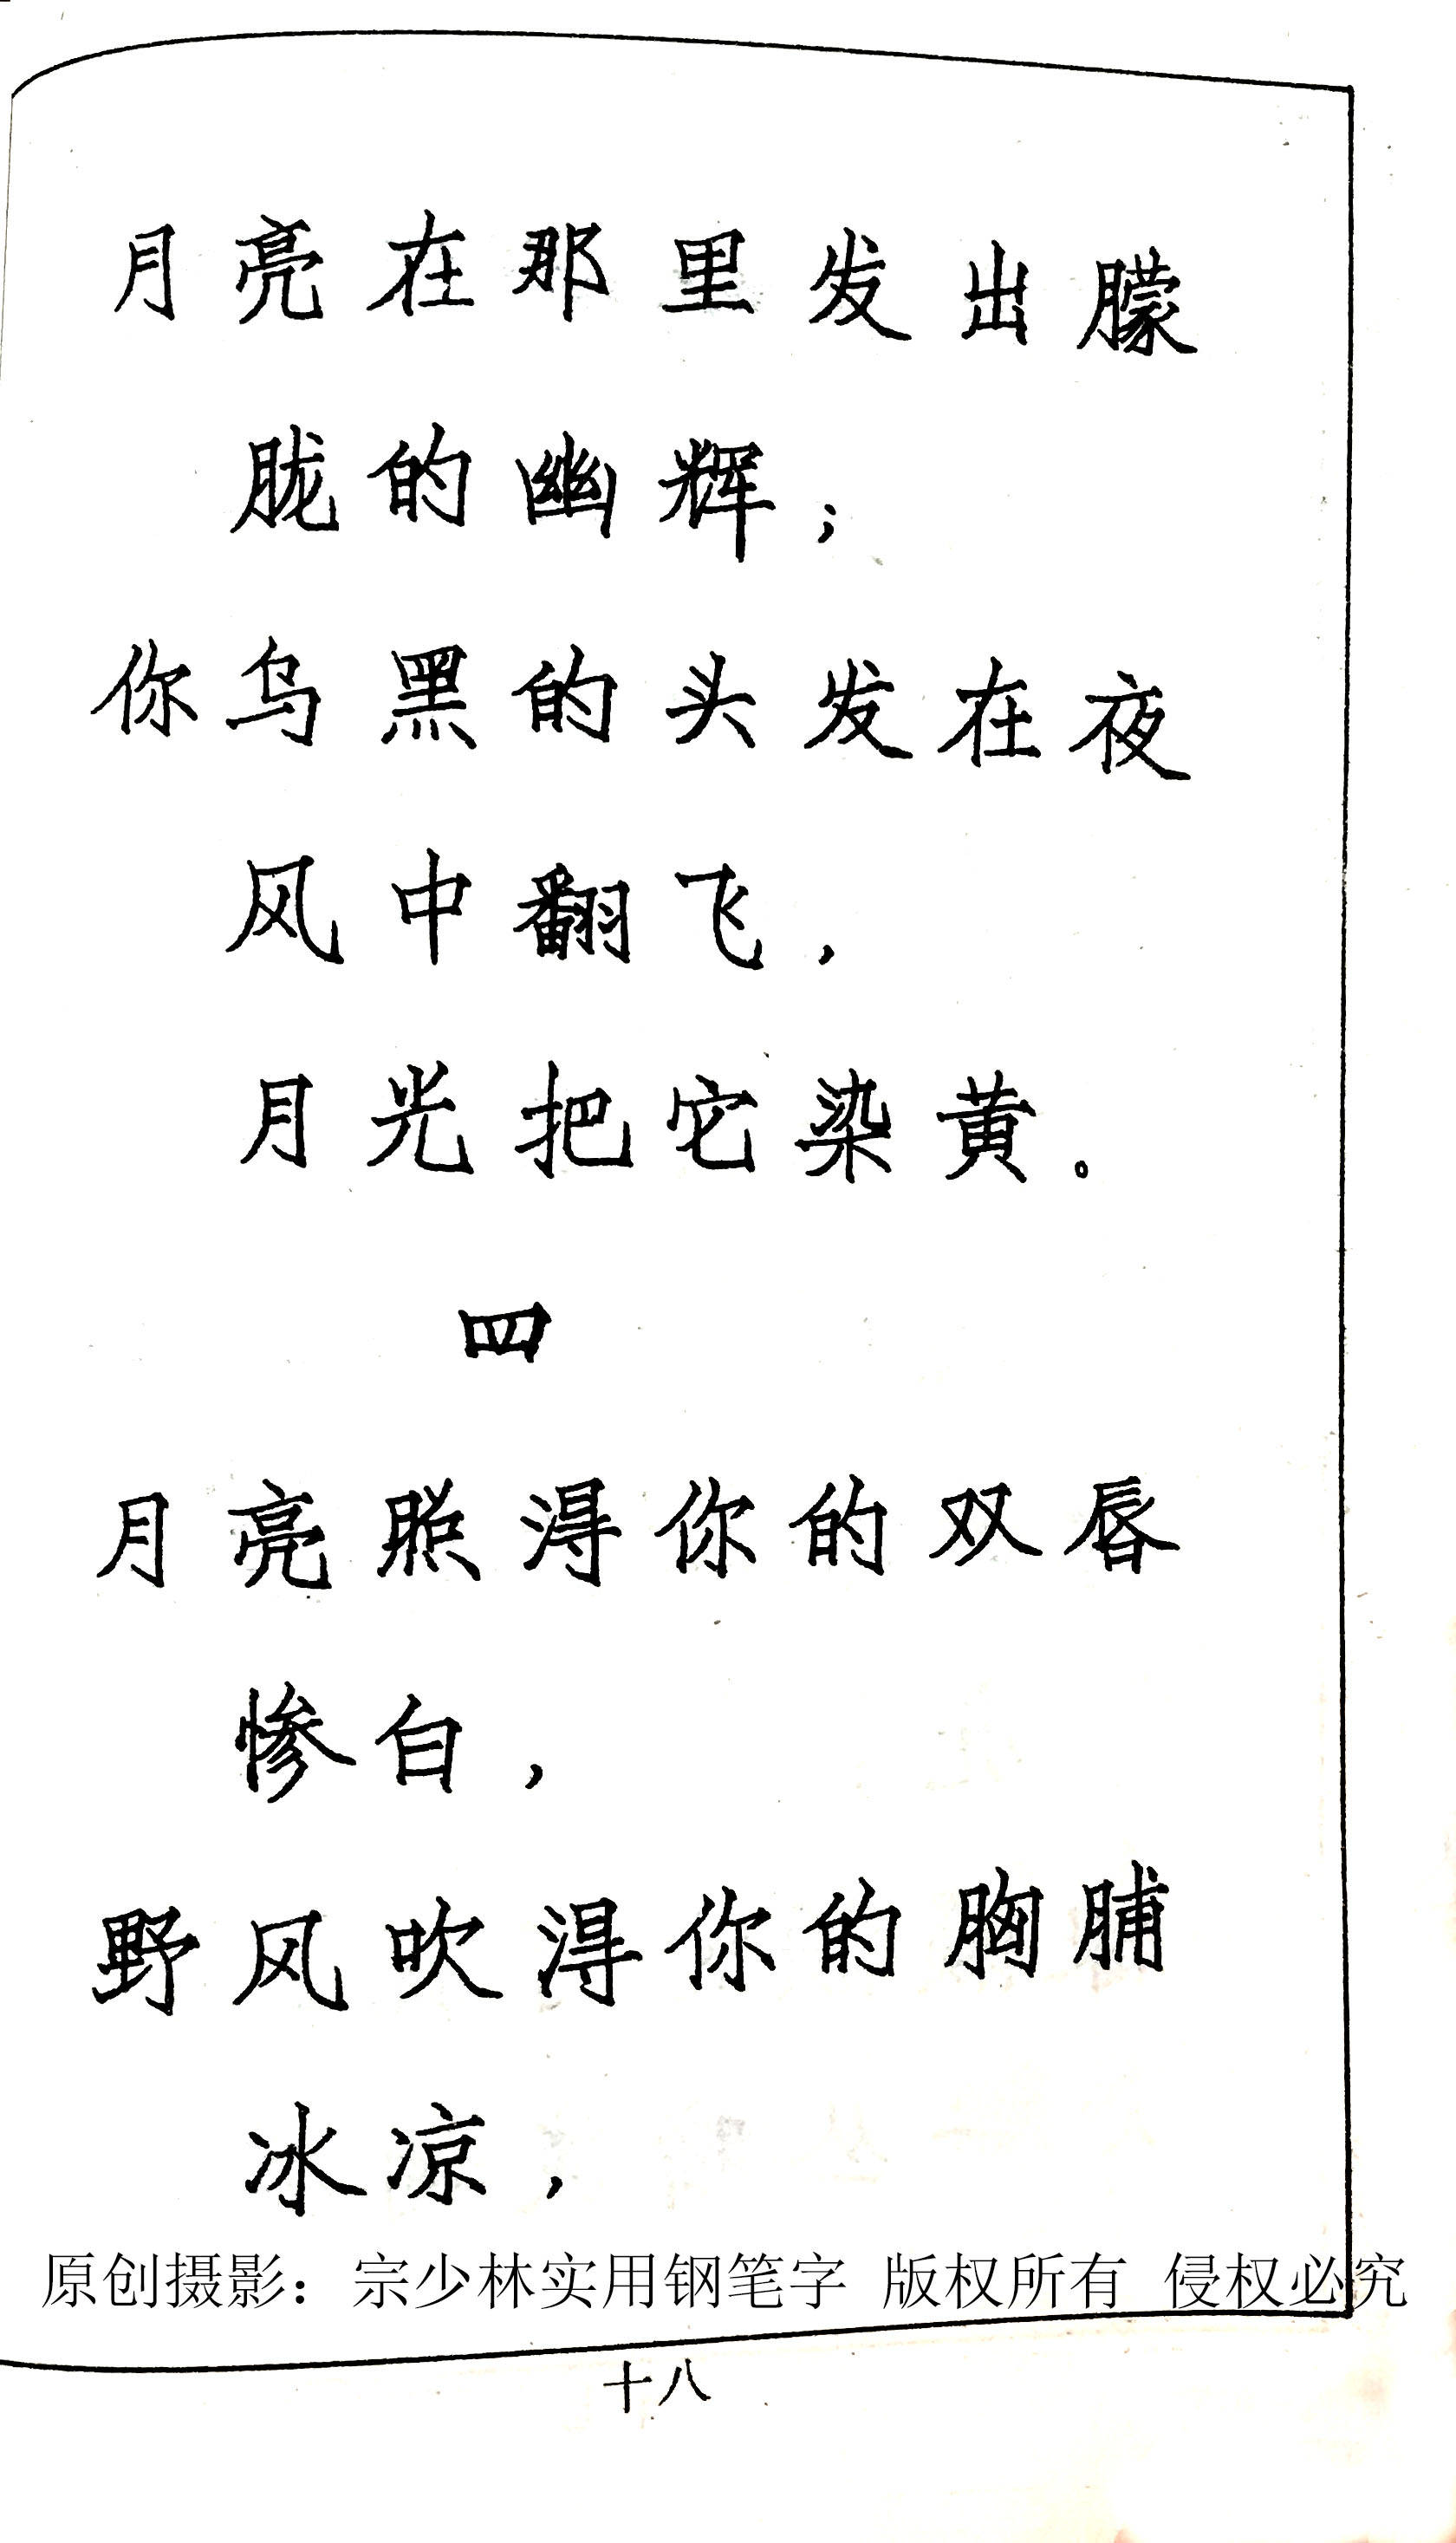 月亮在那里发出朦
胧的幽辉；
你乌黑的头发在夜
风中翻飞，
月光把它染黄。
四
月亮照得你的双唇
惨白，
野风吹得你的胸脯
冰凉，
原创摄影：宗少林实用钢笔字 版权所有 侵权必究
十八